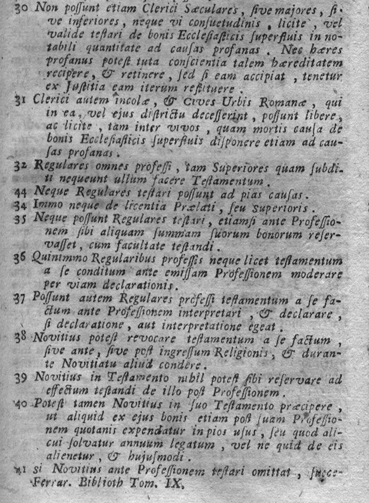 30 Non possunt etiam Clerici Sæculares, sive majores, si-
ve inferiores, neque vi consuetudinis, licite, vel
valide testari de bonis Ecclesiasticis superfluis in no-
tabili quantitate ad causas profanas. Nec hæres
profanus potest tuta conscientia talem hæreditatem
recipere, & retinere, sed si eam accipiat, tenetur
ex Justitia eam iterum restituere.
31 Clerici autem incolæ, & Cives Urbis Romanæ, qui
in ea, vel ejus districtu decesserint, possunt libere,
ac licite, tam inter vivos, quam mortis causa de
bonis Ecclesiasticis superfluis disponere etiam ad cau-
sas profanas.
32 Regulares omnes professi, tam Superiores quam subdi-
ti nequeunt ullum facere Testamentum.
44 Neque Regulares testari possunt ad pias causas.
34 Immo neque de licentia Prælati, seu Superioris.
35 Neque possunt Regulares testari, etiamsi ante Professio-
nem sibi aliquam summam suorum bonorum reser-
vasset, cum facultate testandi.
36 Quinimmo Regularibus professis neque licet testamentum
a se conditum ante emissam Professionem moderare
per viam declarationis.
37 Possunt autem Regulares professi testamentum a se fa-
ctum ante Professionem interpretari, & declarare,
si declaratione, aut interpretatione egeat.
38 Novitius potest revocare testamentum a se factum,
sive ante, sive post ingressum Religionis, & duran-
te Novitiatu aliud condere.
39 Novitius in Testamento nihil potest sibi reservare ad
effectum testandi de illo post Professionem.
40 Potest tamen Novitius in suo Testamento præcipere,
ut aliquid ex ejus bonis etiam post suam Professio-
nem quotanis expendatur in pios usus, seu quod ali-
cui solvatur annuum legatum, vel ne quid de eis
alienetur, & hujusmodi.
41 si Novitius ante Professionem testari omittat, succe-
Ferrar. Biblioth Tom. IX.